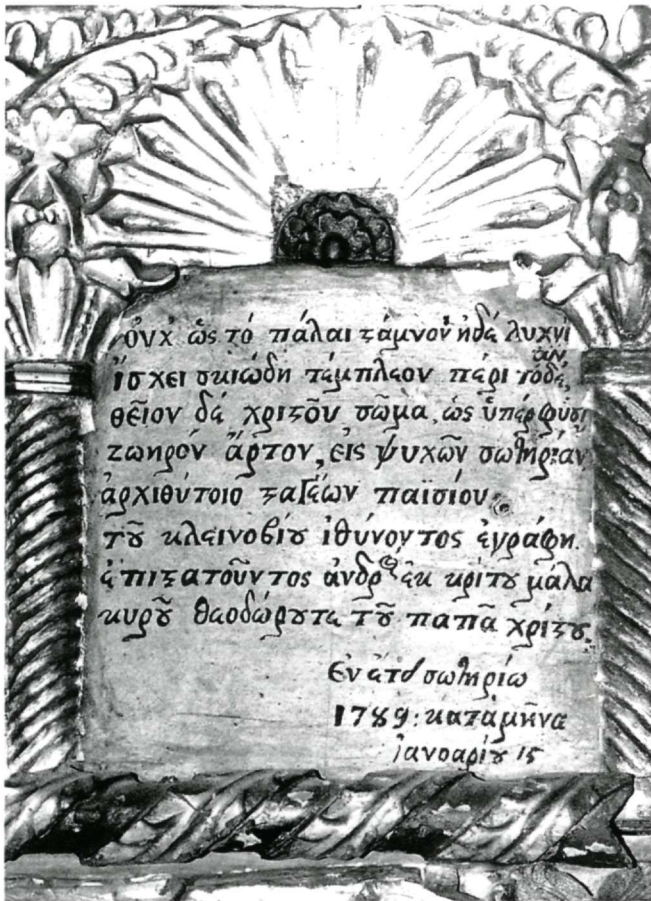 οὐχ ὡς τό πάλαι στάμνον ἠδέ λυχνίαν
ἴσχει σκιώδη τέμπλεον πέρι τόδε,
θεῖον δέ χριστοῦ σῶμα, ὡς ὑπέρφυσι
ζωηρόν ἄρτον, εἰς ψυχῶν σωτηρίαν
ἀρχιθύτοιο σταγέων παϊσίου
τοῦ κλεινοβίου ἰθύνοντος ἐγράφη.
ἐπιστατοῦντος ἀνδρὸς ἐκ κρίτου μάλα
κυροῦ θεοδώρου τε τοῦ παπᾶ χρίστου.
Ἐν ἔτει σωτηρίω
1789: κατά μῆνα
ἰανοαρίου 15